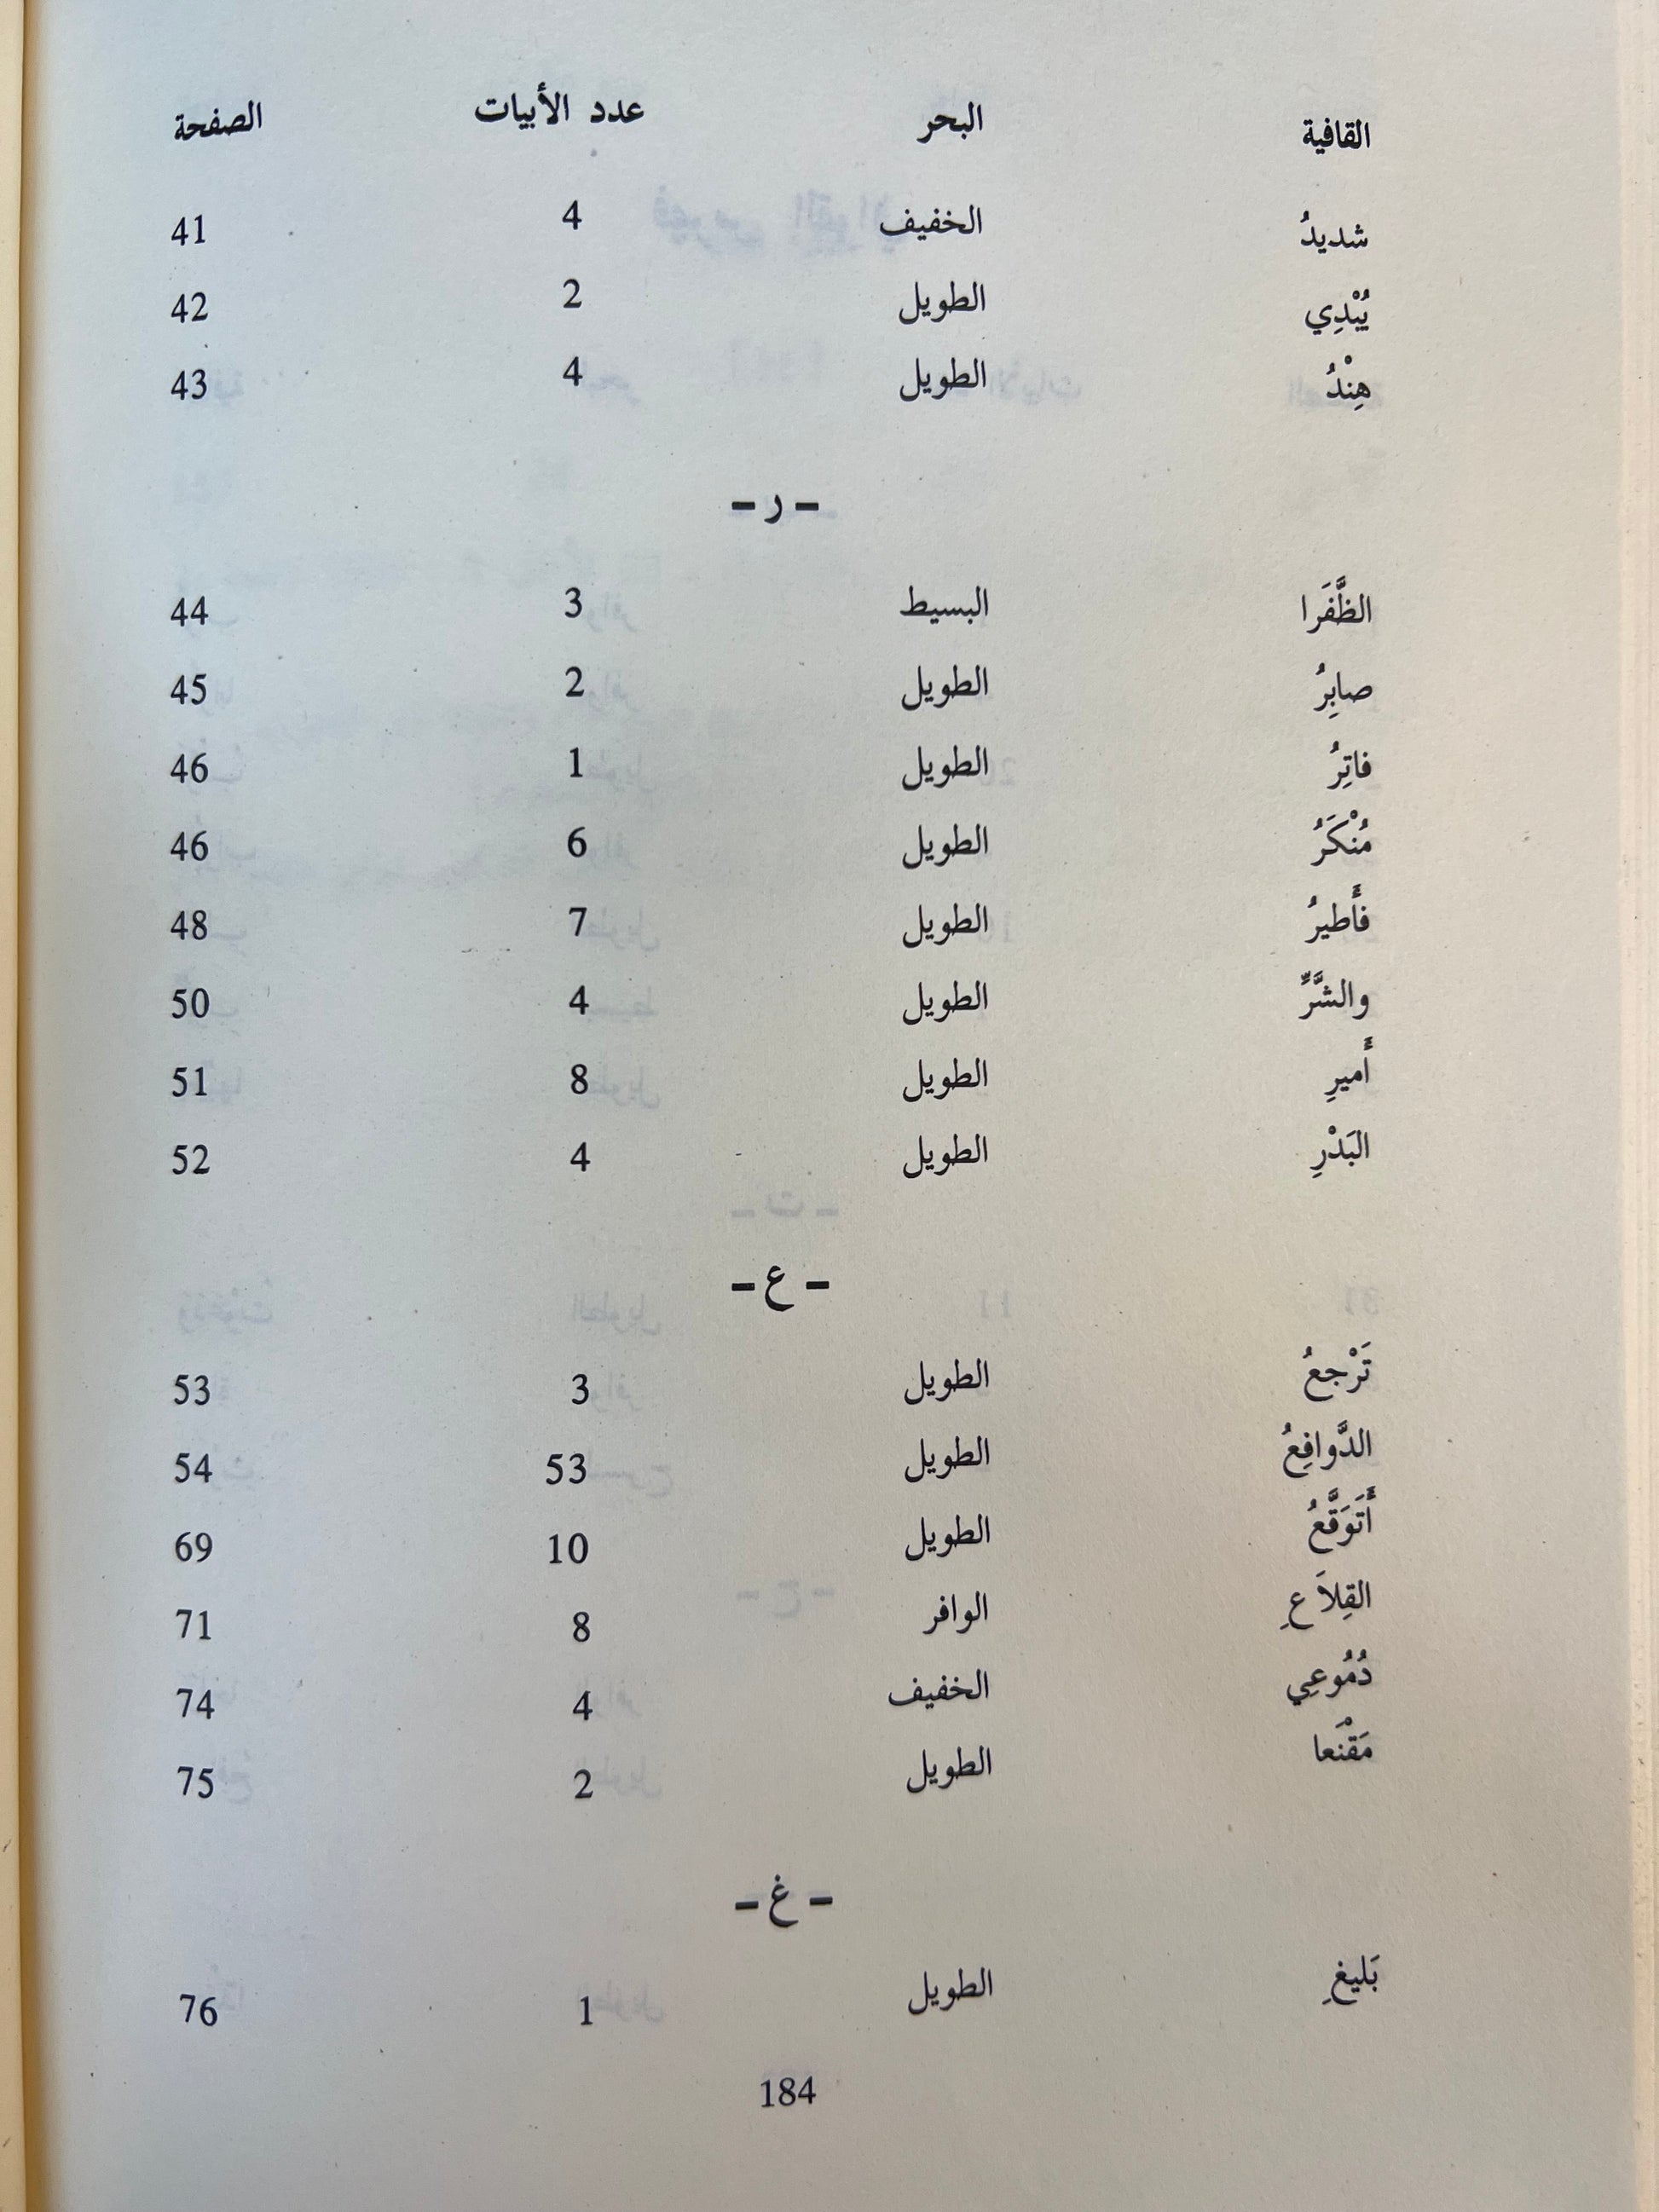 القافية البحر عدد الأبيات الصفحة
شديدُ الخفيف 4 41
يُبْدِي الطويل 2 42
هِنْدُ الطويل 4 43
- ر -
الظَّفَرا البسيط 3 44
صابِرُ الطويل 2 45
فاتِرُ الطويل 1 46
مُنْكَرُ الطويل 6 46
فأَطيرُ الطويل 7 48
والشَّرِّ الطويل 4 50
أَميرِ الطويل 8 51
البَدْرِ الطويل 4 52
- ع -
تَرْجعُ الطويل 3 53
الدَّوافِعُ الطويل 53 54
أَتَوَقَّعُ الطويل 10 69
القِلاَعِ الوافر 8 71
دُمُوعِي الخفيف 4 74
مَقْنَعا الطويل 2 75
- غ -
بَليغِ الطويل 1 76
184